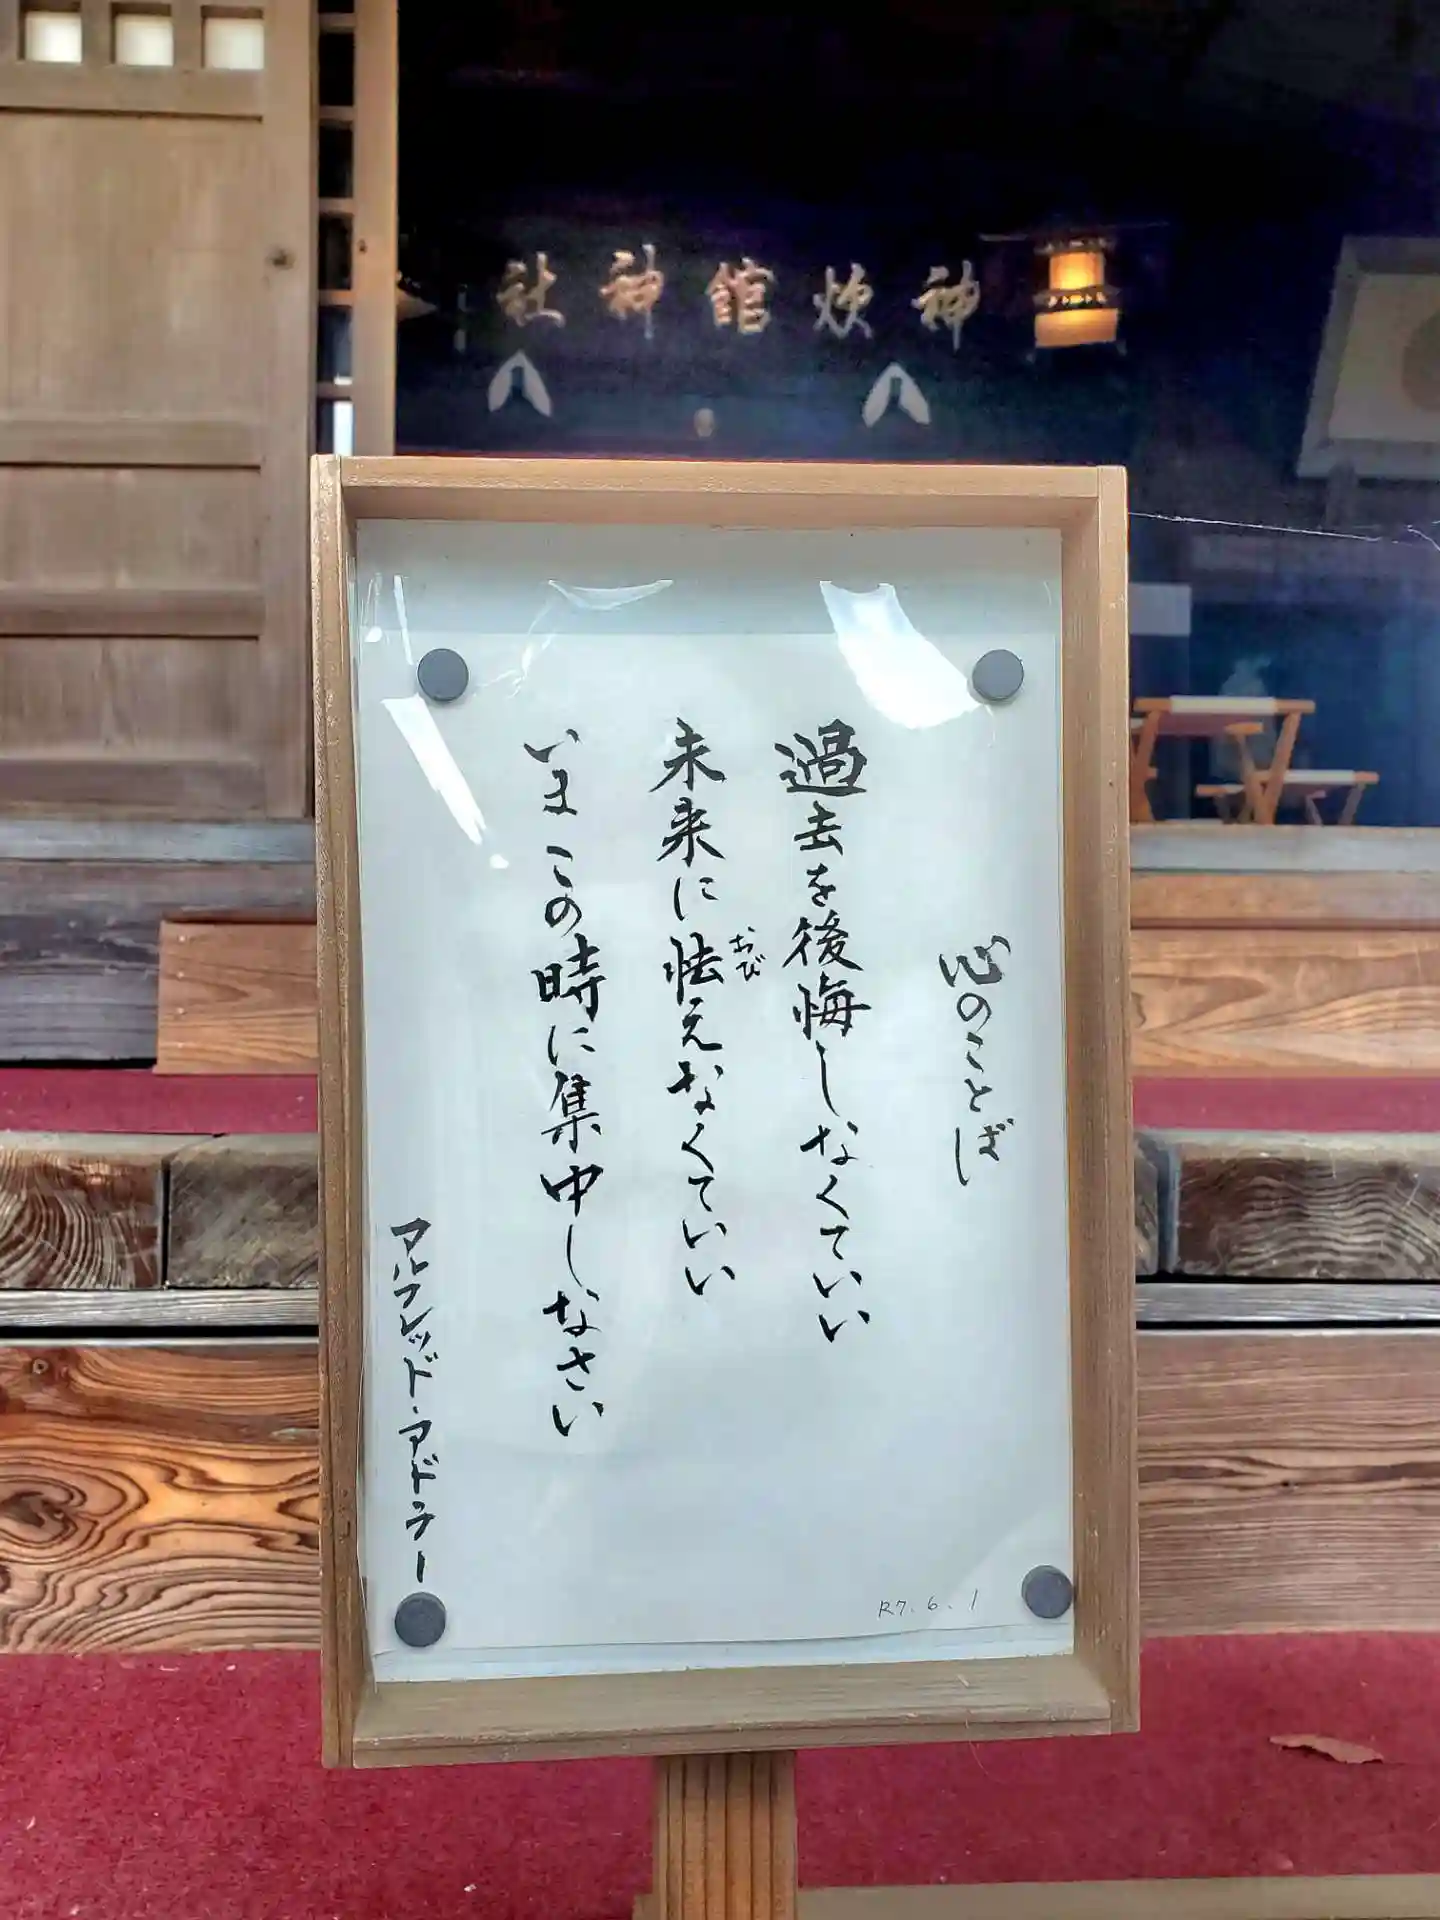 社神館炊神
心のことば
過去を後悔しなくていい
未来に怯えなくていい
おび
いま この時に集中しなさい
アルフレッド・アドラー
R7.6.1